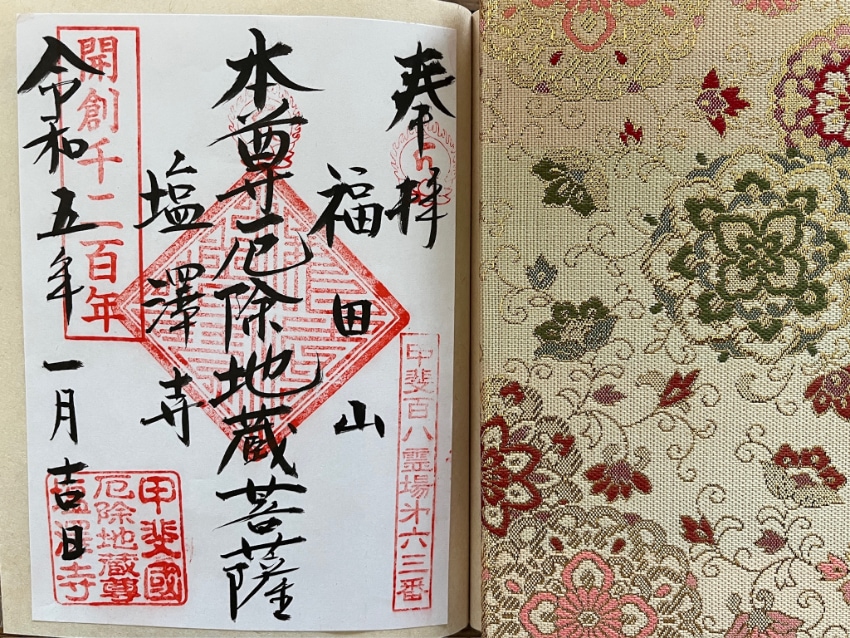 奉拝
甲斐百八霊場第六三番
福田山
本尊厄除地蔵菩薩
塩澤寺
開創千二百年
令和五年一月吉日
甲斐國
厄除地蔵尊
塩澤寺